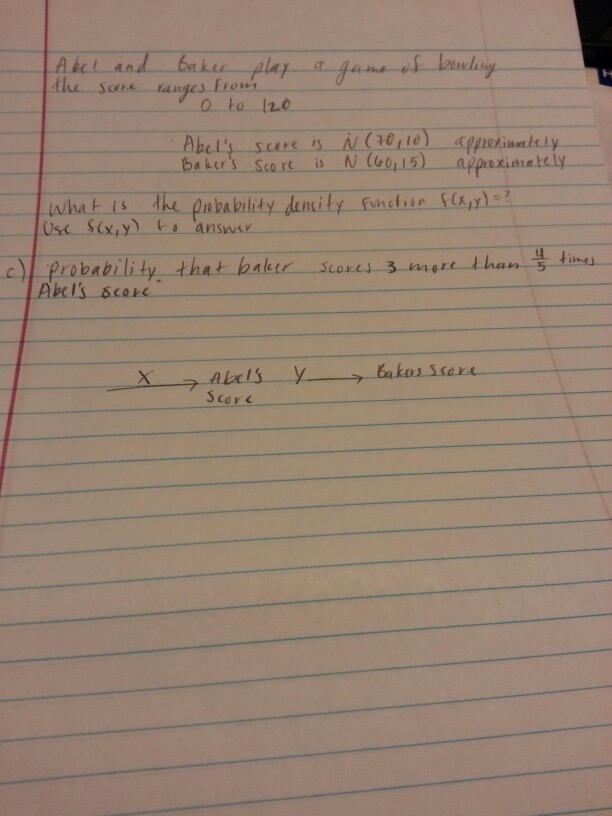 Abel and Baker play a game of bowling
the score ranges From
0 to 120
Abel's score is N (70,10) approximately
Baker's Score is N (60,15) approximately
What is the probability density function f(x,y)=?
Use f(x,y) to answer
c) probability that baker scores 3 more than 4/5 times
Abel's score.
X → Abel's Y → Bakers Score
Score